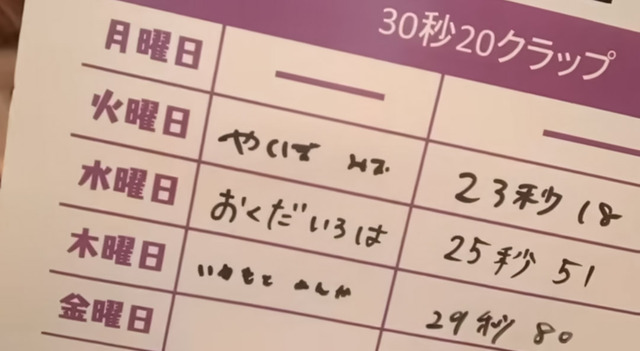 30秒20クラップ
月曜日
火曜日 やくば 23秒18
水曜日 おくだいろは 25秒51
木曜日 いわもと 29秒80
金曜日